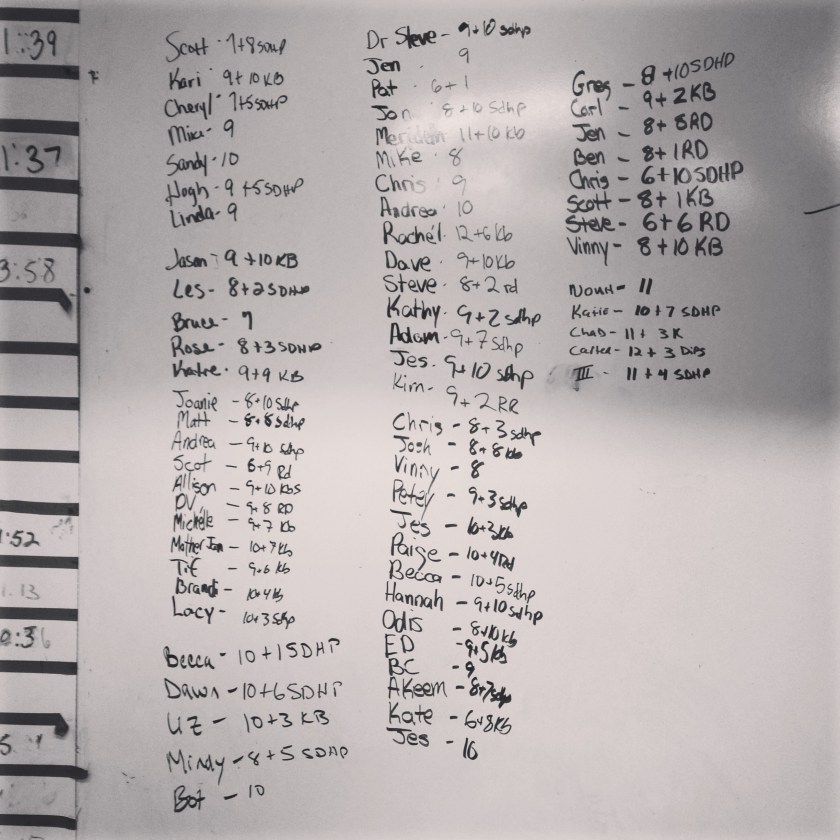 1:39
1:37
3:58
:52
1.13
0:36
5
Scott - 7+8SDHP
Kari 9+10KB
Cheryl 7+5SDHP
Mike - 9
Sandy - 10
Hugh - 9 +5SDHP
Linda - 9
Jason - 9 +10KB
Les - 8+2SDHP
Bruce - 7
Rose - 8+3SDHP
Katie - 9+9 KB
Joanie - 8+10 Sdhp
Matt - 8+8 sdhp
Andrea - 9+10 sdhp
Scot - 6+9 Rd
Allison - 9+10 KbS
DV - 9+8 RD
Michelle - 9+7 Kb
Mother Jan - 10+7Kb
Tif - 9+6 Kb
Brandi - 10+4Kb
Lacy - 10+3 Sdhp
Becca - 10+1SDHP
Dawn - 10+6SDHP
Liz - 10+3 KB
Mindy - 8+5 SDHP
Bot - 10
Dr Steve - 9+10 sdhp
Jen 9
Pat - 6+1
Jon 8+10 Sdhp
Meridith 11+10 Kb
Mike - 8
Chris 9
Andrea 10
Rachel 12+6 Kb
Dave 9+10Kb
Steve 8+2 rd
Kathy - 9+2 sdhp
Adam - 9+7 Sdhp
Jes - 9+10 sdhp
Kim - 9+2 RR
Chris - 8+3 sdhp
Josh - 8+8 kb
Vinny - 8
Petey - 9+3 sdhp
Jes - 10+3Kb
Paige - 10+4Rd
Becca - 10+5 sdhp
Hannah - 9+10 sdhp
Odis - 8+10 Kb
ED - 9+5Kb
BC - 9
AKeem - 8+7 sdhp
Kate - 6+8Kb
Jes - 10
Greg - 8 +10SDHD
Carl - 9+2KB
Jen - 8+8RD
Ben - 8+1RD
Chris - 6+10SDHP
Scott - 8+1KB
Steve - 6+6 RD
Vinny - 8+10 KB
NOUH - 11
Katie - 10+7 SDHP
Chad - 11+ 3K
Carter - 12 + 3 Dips
III - 11+4 SDHP